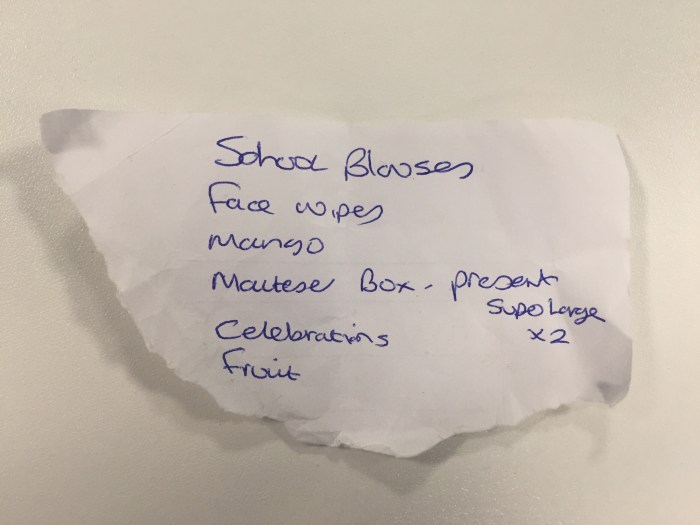 School Blouses
Face wipes
Mango
Maltese Box - present
Supo Large
Celebrations x2
Fruit